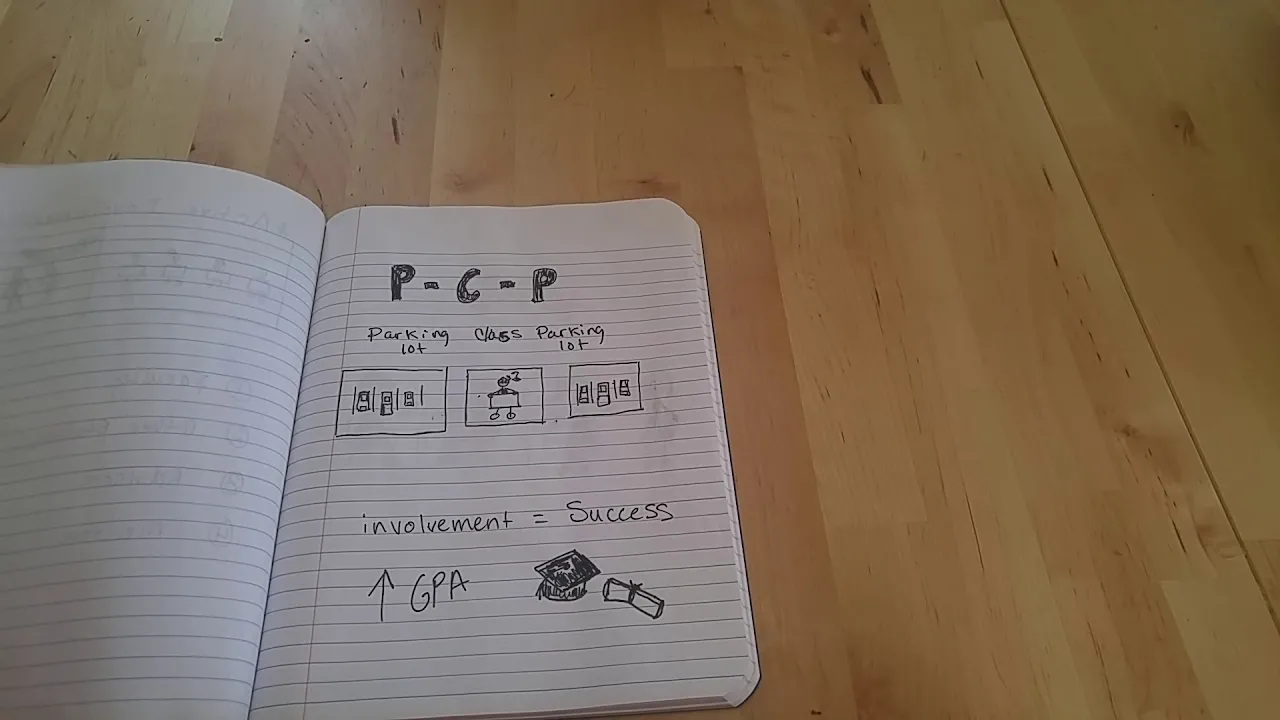 P - C - P
Parking lot Class Parking lot
involvement = Success
↑ GPA